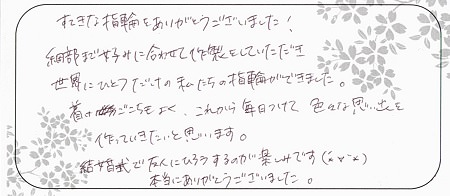 すてきな指輪をありがとうございました！
細部まで好みに合わせて作製をしていただき
世界にひとつだけの私たちの指輪ができました。
着けごこちもよく、これから毎日つけて色々な思い出を
作っていきたいと思います。
結婚式で友人にひろうするのが楽しみです(*^v^*)
本当にありがとうございました。